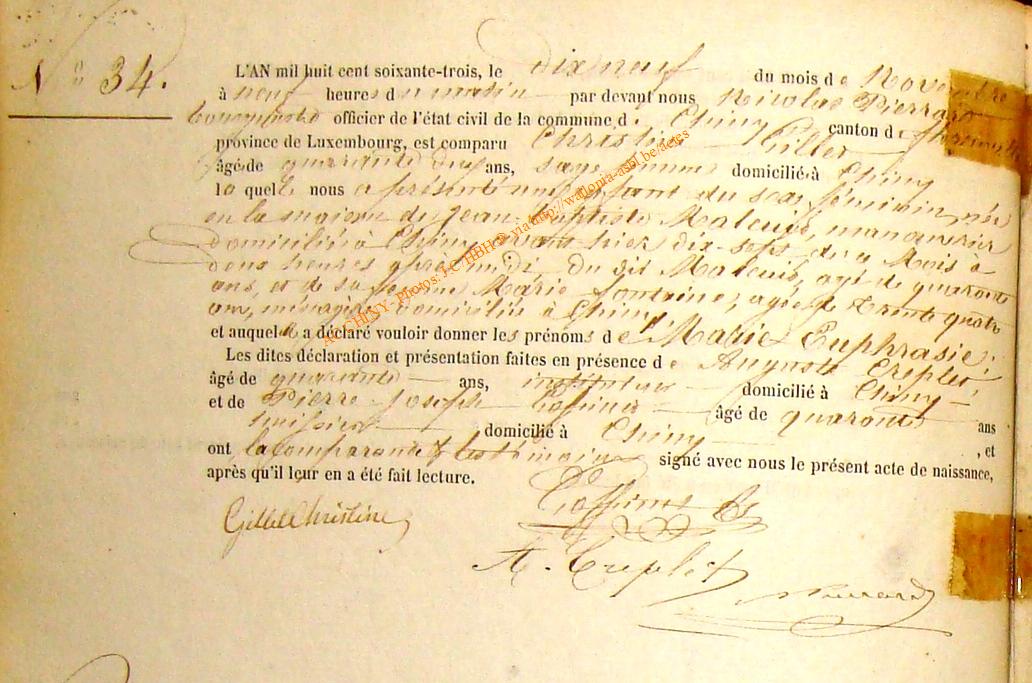 N° 34.
L'AN mil huit cent soixante-trois, le dix neuf du mois de Novembre
à neuf heures du matin par devant nous Nicolas Pierrard
bourgmestre officier de l'état civil de la commune de Chiny canton de
province de Luxembourg, est comparu Christine Gillet
âgée de quarante deux ans, sage femme domiciliée à Chiny
la quelle nous a présenté un enfant du sexe féminin, née
en la maison de Jean-Baptiste manœuvrier
domicilié à Chiny avant hier dix-sept du a Mois à
deux heures après midi, du dit agé de quarante
ans, et de sa femme Marie Fontaine, agée de trente quatre
ans, ménagère domiciliés à Chiny
et auquel a déclaré vouloir donner les prénoms de Marie Euphrasie.
Les dites déclaration et présentation faites en présence de Auguste Creplet
âgé de quarante ans, instituteur domicilié à Chiny
et de Pierre-Joseph âgé de quarante ans
domicilié à Chiny , et
ont la comparante & les témoins signé avec nous le présent acte de naissance,
après qu'il leur en a été fait lecture.
Gillet Christine
A. Creplet
Pierrard
AC CHINY - Photos J-C HBH © - via http://wallonia-asbl.be/actes